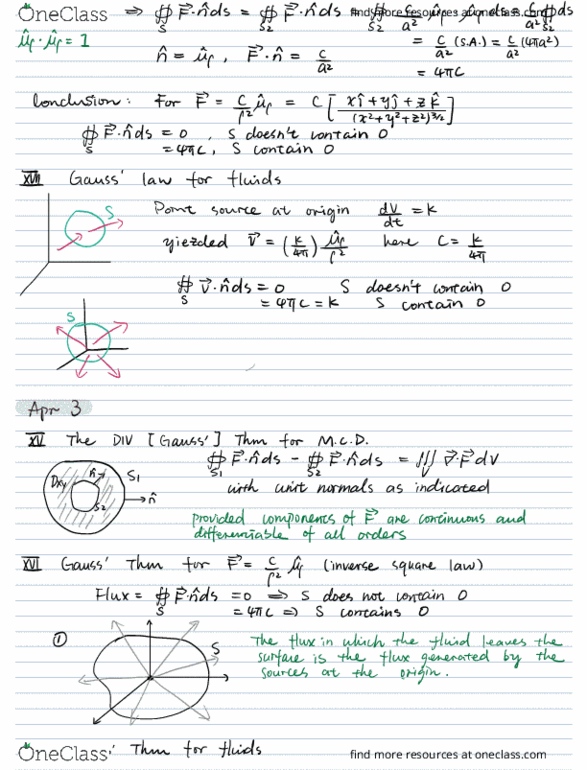 OneClass ⇒ ∯S F⃗·n̂ds = ∯S2 F⃗·n̂ds = find more resources at oneclass.com
μ̂ρ·μ̂ρ = 1
= c/a² (S.A.) = c/a² (4πa²)
n̂ = μ̂ρ , F⃗·n̂ = c/a²
= 4πc
Conclusion: For F⃗ = c/ρ² μ̂ρ = c [ xî + yĵ + zk̂ / (x²+y²+z²)^3/2 ]
∯S F⃗·n̂ds = 0 , S doesn't contain 0
= 4πc , S contain 0
XVII Gauss' law for fluids
S
Point source at origin dV/dt = k
yiezded v⃗ = (k/4π) μ̂ρ/ρ² here c = k/4π
∯S v⃗·n̂ds = 0 S doesn't contain 0
= 4πc = k S contain 0
S
Apr 3
XV The DIV [Gauss'] Thm for M.C.D.
∯S1 F⃗·n̂ds - ∯S2 F⃗·n̂ds = ∭V ∇⃗·F⃗dv
Dxy n̂ S1 → n̂
S2
with unit normals as indicated
provided components of F⃗ are continuous and
differentiable of all orders
XVI Gauss' Thm for F⃗ = c/ρ² μ̂ρ (inverse square law)
Flux = ∯S F⃗·n̂ds = 0 ⇒ S does not contain 0
= 4πc ⇒ S contains 0
① S
The flux in which the fluid leaves the
surface is the flux generated by the
sources at the origin.
OneClass' Thm for fluids
find more resources at oneclass.com